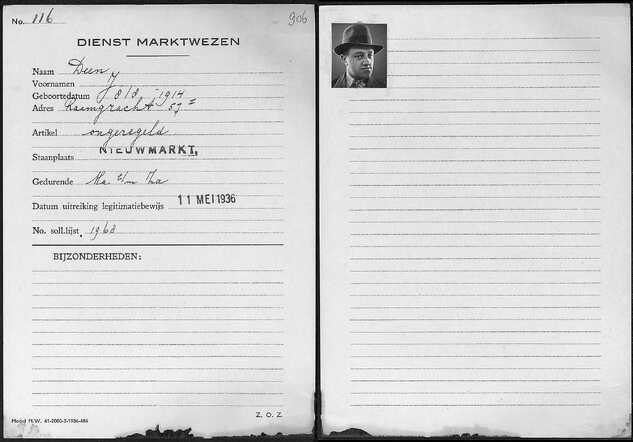 No. 116
906
DIENST MARKTWEZEN
Naam Deen
Voornamen J
Geboortedatum 8/8 - 1914
Adres Raamgracht 57 II
Artikel ongeregeld
Staanplaats NIEUWMARKT.
Gedurende Ma. t/m Za
Datum uitreiking legitimatiebewijs 11 MEI 1936
No. soll.lijst. 1968
BIJZONDERHEDEN:
Model M.W. 41-2000-3-1936-486
Z. O. Z.